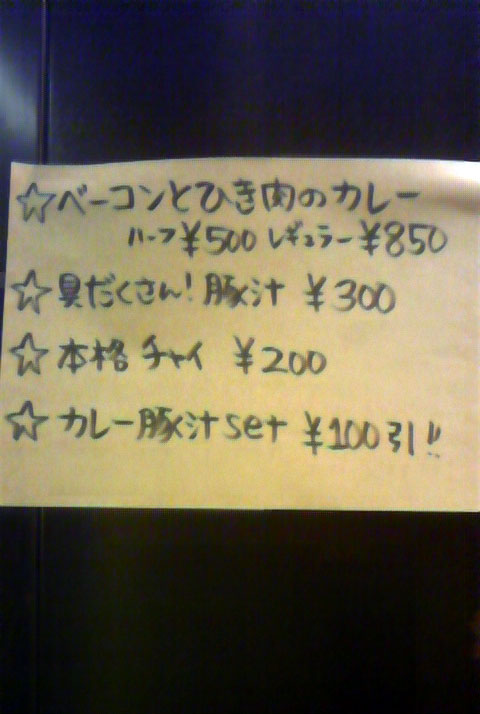 ☆ベーコンとひき肉のカレー
ハーフ ¥500 レギュラー ¥850
☆具だくさん!豚汁 ¥300
☆本格チャイ ¥200
☆カレー豚汁set ¥100引!!